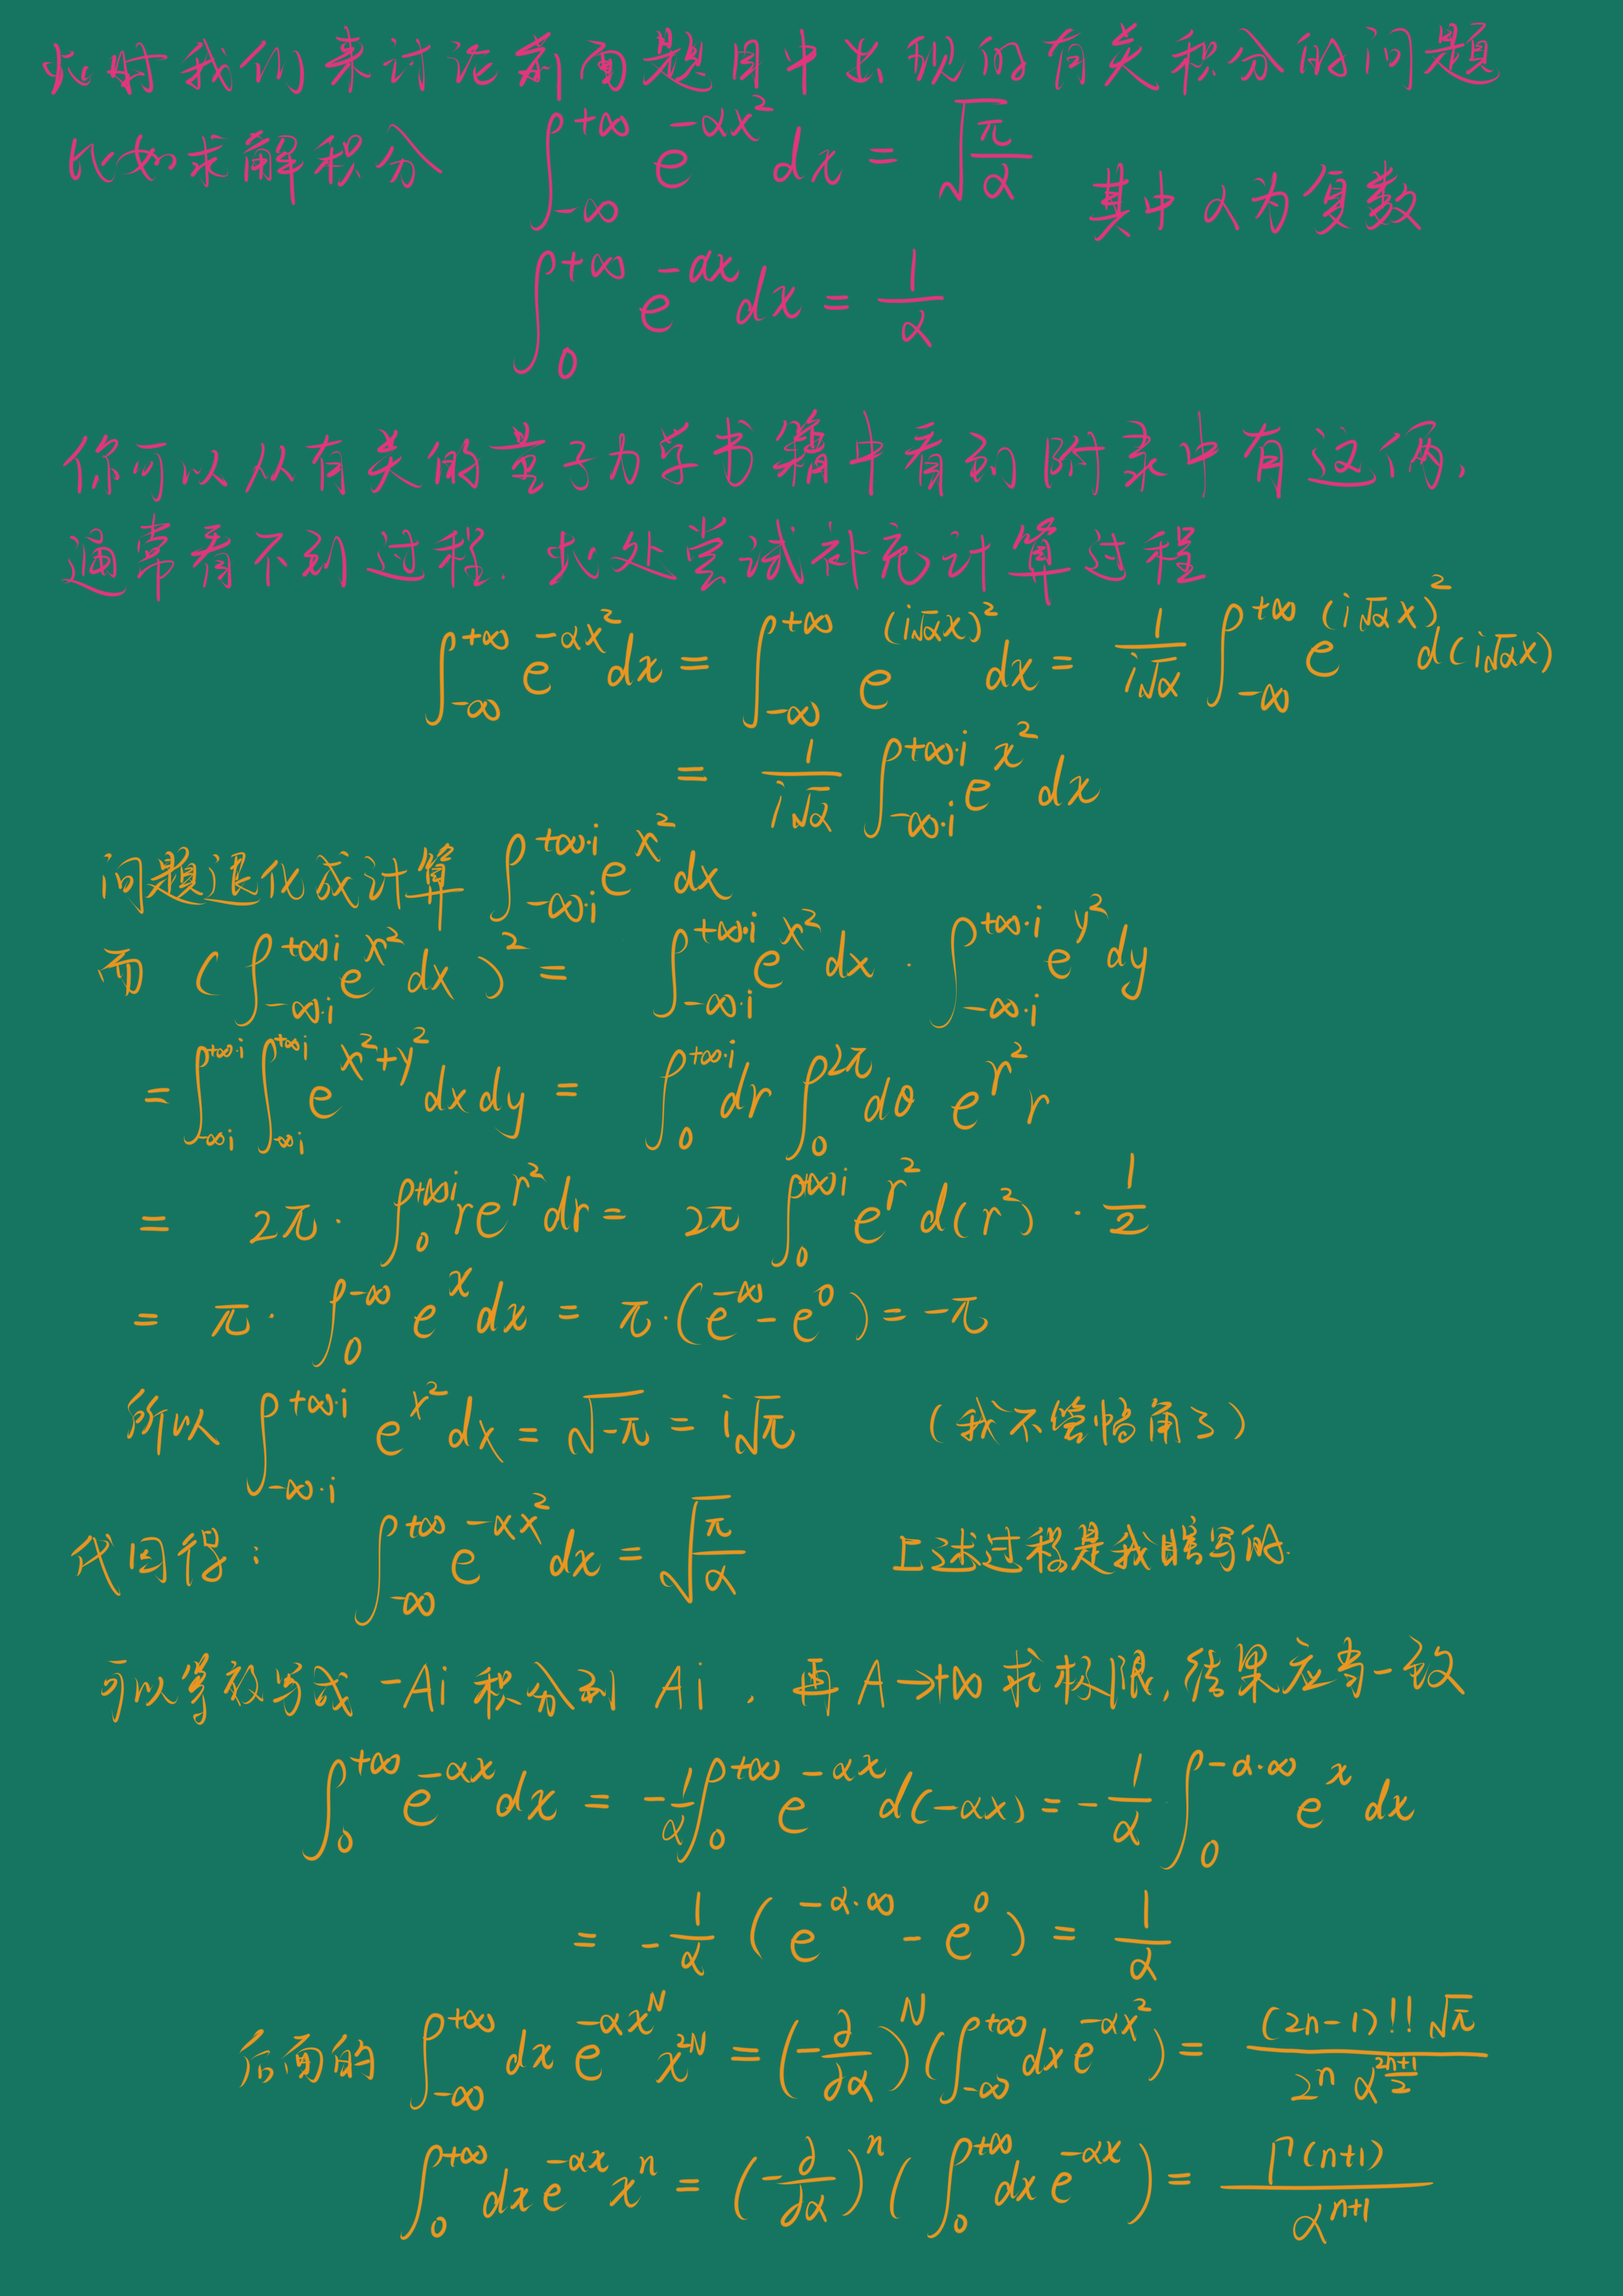 此时我们来讨论前面题目中出现的有关积分的问题
比如求解积分 ∫_{-∞}^{+∞} e^{-αx²} dx = √(π/α) 其中α为复数
∫_0^{+∞} e^{-αx} dx = 1/α
你可以从有关的量子力学书籍中看到附录中有这俩,
通常看不到过程. 此处尝试补充计算过程
∫_{-∞}^{+∞} e^{-αx²} dx = ∫_{-∞}^{+∞} e^{(i√α x)²} dx = 1/(i√α) ∫_{-∞}^{+∞} e^{(i√α x)²} d(i√α x)
= 1/(i√α) ∫_{-∞·i}^{+∞·i} e^{x²} dx
问题退化成计算 ∫_{-∞·i}^{+∞·i} e^{x²} dx
而 (∫_{-∞·i}^{+∞i} e^{x²} dx)² = ∫_{-∞·i}^{+∞·i} e^{x²} dx · ∫_{-∞·i}^{+∞·i} e^{y²} dy
= ∫_{-∞i}^{+∞·i} ∫_{-∞i}^{+∞i} e^{x²+y²} dx dy = ∫_0^{+∞·i} dr ∫_0^{2π} dθ e^{r²} r
= 2π · ∫_0^{+∞i} r e^{r²} dr = 2π ∫_0^{+∞i} e^{r²} d(r²) · 1/2
= π · ∫_0^{-∞} e^x dx = π·(e^{-∞} - e^0) = -π
所以 ∫_{-∞·i}^{+∞·i} e^{x²} dx = √-π = i√π (我不管幅角了)
代回得: ∫_{-∞}^{+∞} e^{-αx²} dx = √(π/α) 上述过程是我瞎写的.
可以等效写成 -Ai 积分到 Ai, 再 A→+∞ 求极限, 结果应当一致
∫_0^{+∞} e^{-αx} dx = -1/α ∫_0^{+∞} e^{-αx} d(-αx) = -1/α ∫_0^{-α·∞} e^x dx
= -1/α (e^{-α·∞} - e^0) = 1/α
后面的 ∫_{-∞}^{+∞} dx e^{-αx^N} x^{2N} = (-∂/∂α)^N (∫_{-∞}^{+∞} dx e^{-αx²}) = (2n-1)!!√π / (2^n α^{(2n+1)/2})
∫_0^{+∞} dx e^{-αx} x^n = (-∂/∂α)^n (∫_0^{+∞} dx e^{-αx}) = Γ(n+1)/α^{n+1}